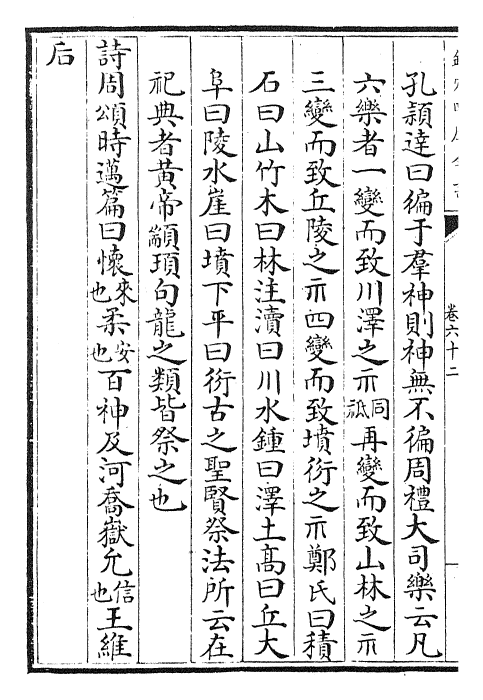 卷六十二
孔頴達曰徧于羣神則神無不徧周禮大司樂云凡
六樂者一變而致川澤之示同祗再變而致山林之示
三變而致丘陵之示四變而致墳衍之示鄭氏曰積
石曰山竹木曰林注瀆曰川水鍾曰澤土髙曰丘大
阜曰陵水崖曰墳下平曰衍古之聖賢祭法所云在
祀典者黃帝顓頊句龍之類皆祭之也
詩周頌時邁篇曰懷來也柔安也百神及河喬嶽允信也王維
后